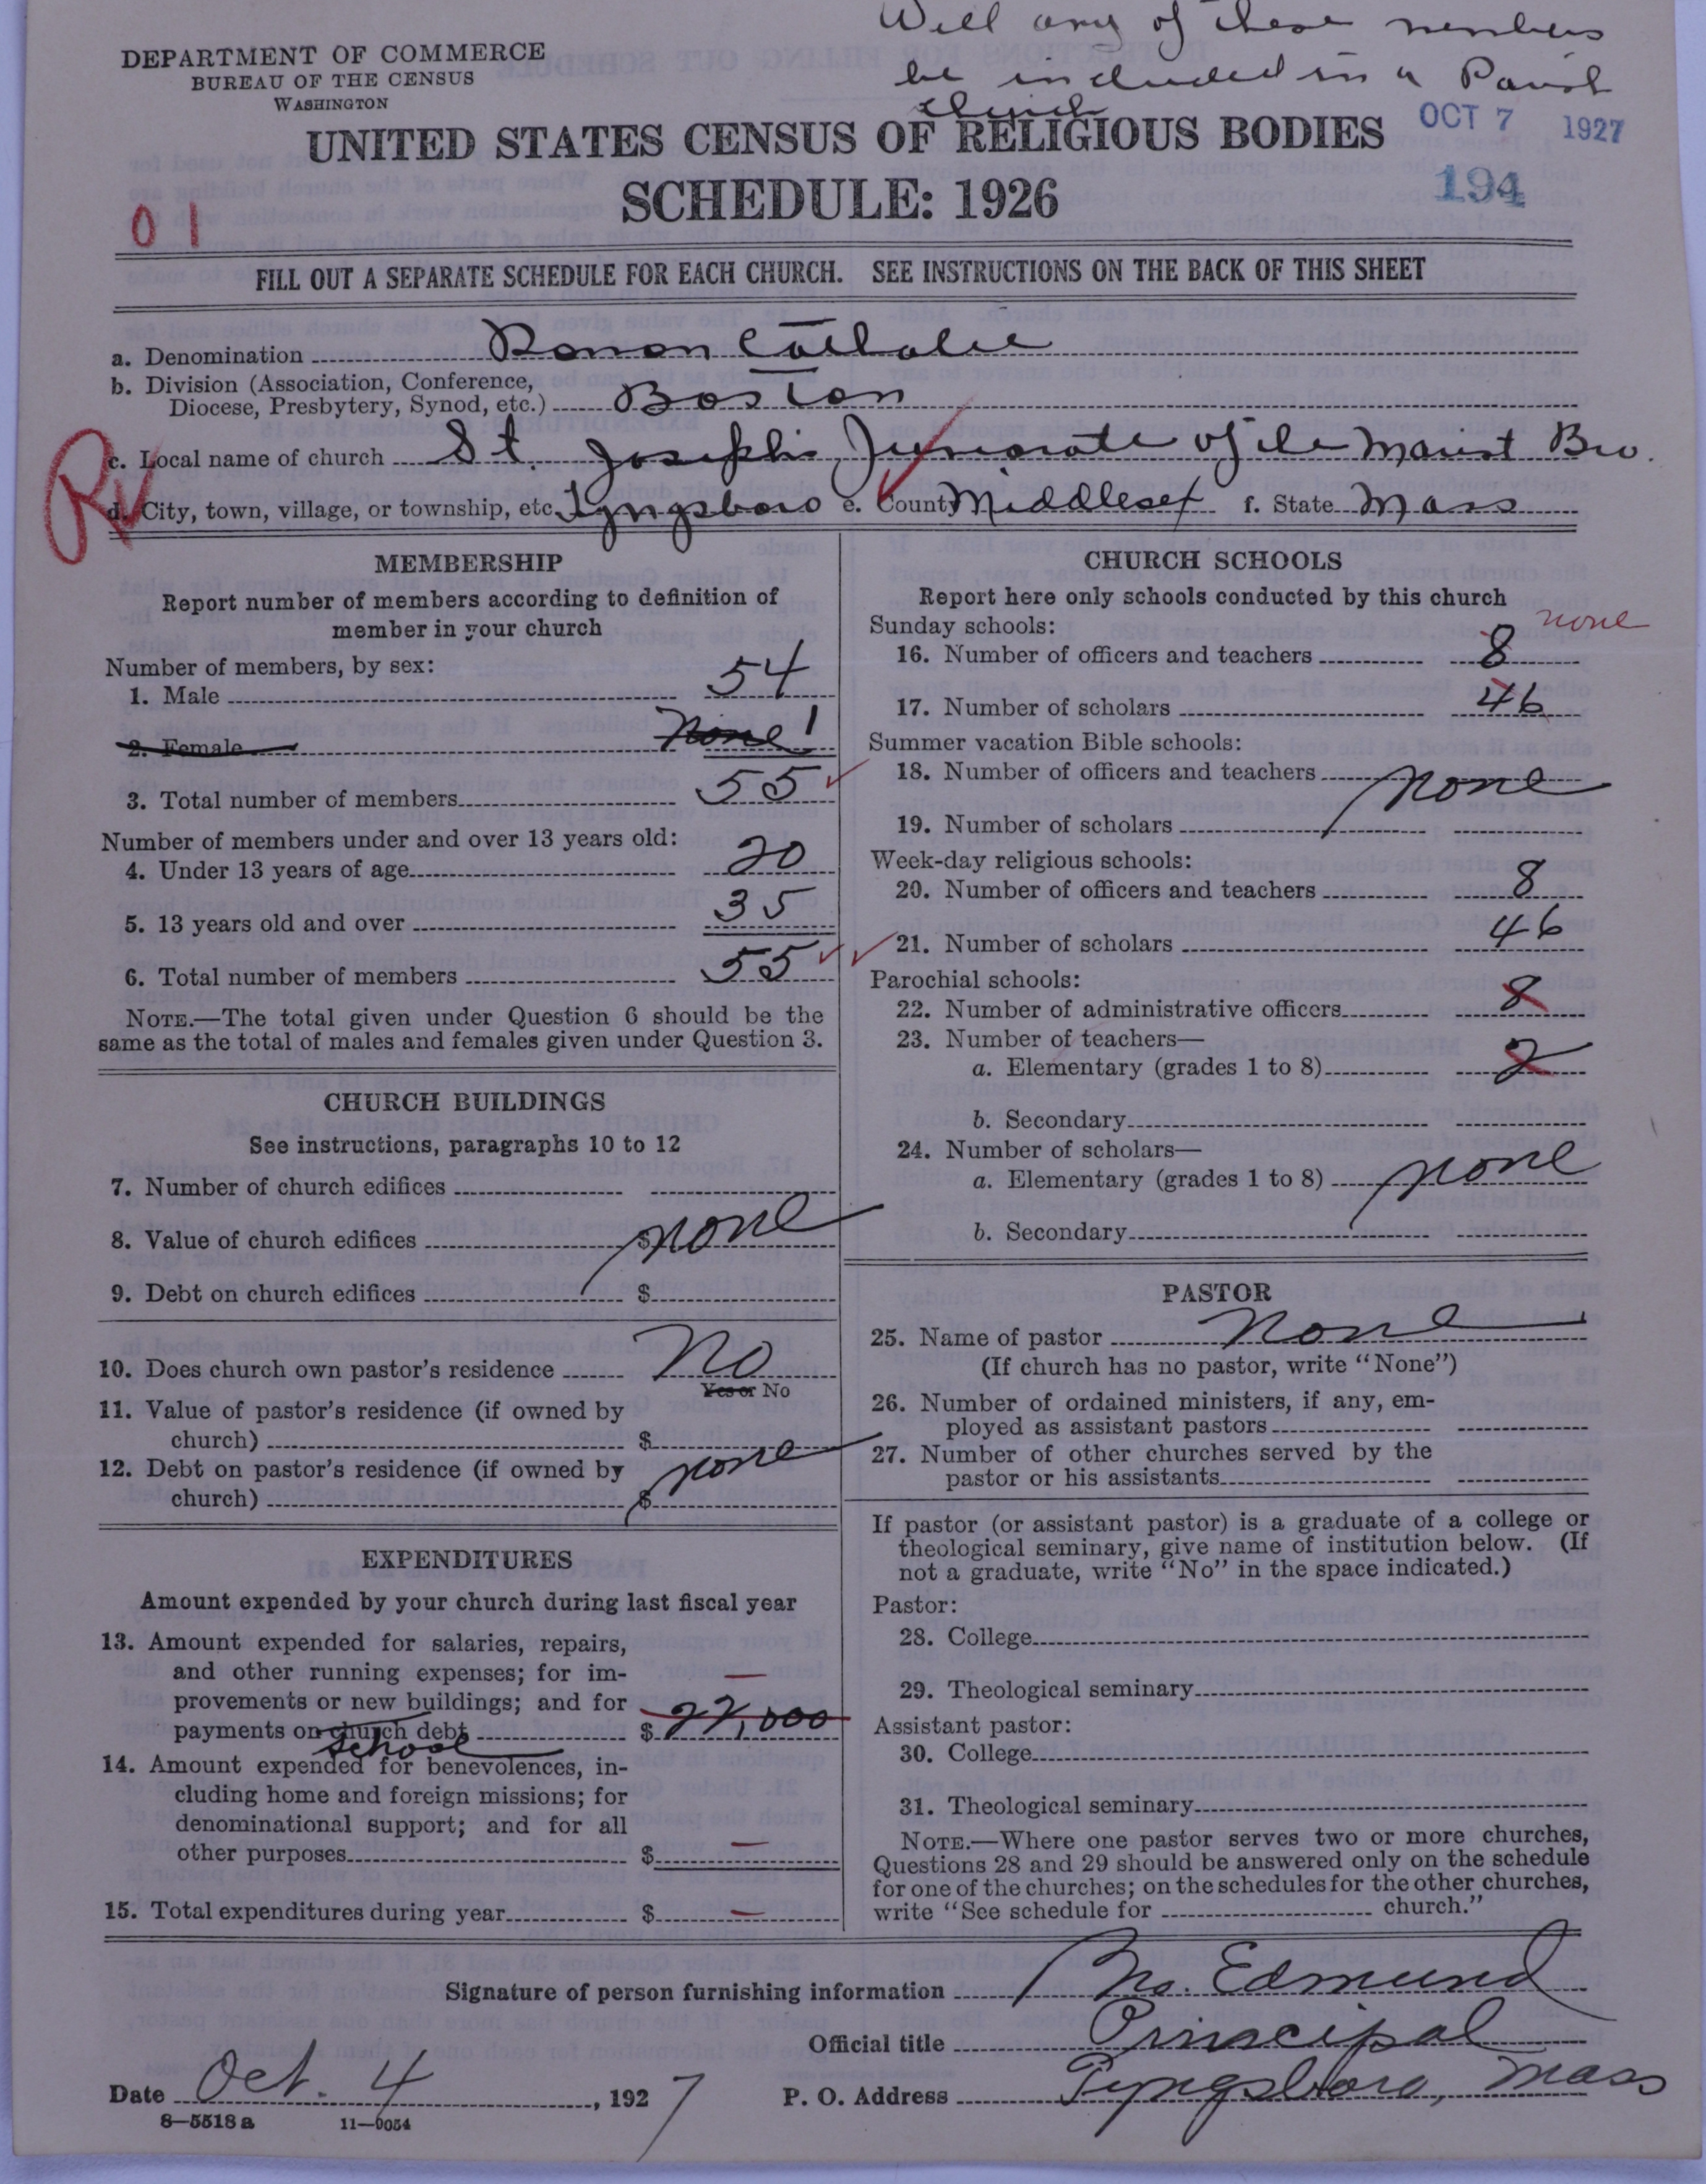 Will any of these members
be included in a Parish
church
DEPARTMENT OF COMMERCE
BUREAU OF THE CENSUS
WASHINGTON
UNITED STATES CENSUS OF RELIGIOUS BODIES
OCT 7 1927
SCHEDULE: 1926
194
01
FILL OUT A SEPARATE SCHEDULE FOR EACH CHURCH. SEE INSTRUCTIONS ON THE BACK OF THIS SHEET
a. Denomination Roman Catholic
b. Division (Association, Conference,
Diocese, Presbytery, Synod, etc.) Boston
c. Local name of church St. Joseph's Juniorate of the Marist Bro.
d. City, town, village, or township, etc. Tyngsboro e. County Middlesex f. State Mass
MEMBERSHIP
Report number of members according to definition of
member in your church
Number of members, by sex:
1. Male 54
2. Female None 1
3. Total number of members 55
Number of members under and over 13 years old:
4. Under 13 years of age 20
5. 13 years old and over 35
6. Total number of members 55
NOTE.—The total given under Question 6 should be the
same as the total of males and females given under Question 3.
CHURCH BUILDINGS
See instructions, paragraphs 10 to 12
7. Number of church edifices
8. Value of church edifices $ none
9. Debt on church edifices $
10. Does church own pastor's residence No
Yes or No
11. Value of pastor's residence (if owned by
church) $
12. Debt on pastor's residence (if owned by none
church) $
EXPENDITURES
Amount expended by your church during last fiscal year
13. Amount expended for salaries, repairs,
and other running expenses; for im- —
provements or new buildings; and for
payments on church debt $ 22,000
school
14. Amount expended for benevolences, in-
cluding home and foreign missions; for
denominational support; and for all
other purposes $ —
15. Total expenditures during year $ —
CHURCH SCHOOLS
Report here only schools conducted by this church
Sunday schools: none
16. Number of officers and teachers 8
17. Number of scholars 46
Summer vacation Bible schools:
18. Number of officers and teachers none
19. Number of scholars
Week-day religious schools:
20. Number of officers and teachers 8
21. Number of scholars 46
Parochial schools:
22. Number of administrative officers 8
23. Number of teachers—
a. Elementary (grades 1 to 8) 2
b. Secondary
24. Number of scholars—
a. Elementary (grades 1 to 8) none
b. Secondary
PASTOR
25. Name of pastor None
(If church has no pastor, write "None")
26. Number of ordained ministers, if any, em-
ployed as assistant pastors
27. Number of other churches served by the
pastor or his assistants
If pastor (or assistant pastor) is a graduate of a college or
theological seminary, give name of institution below. (If
not a graduate, write "No" in the space indicated.)
Pastor:
28. College
29. Theological seminary
Assistant pastor:
30. College
31. Theological seminary
NOTE.—Where one pastor serves two or more churches,
Questions 28 and 29 should be answered only on the schedule
for one of the churches; on the schedules for the other churches,
write "See schedule for church."
Signature of person furnishing information Bro. Edmund
Official title Principal
Date Oct. 4, 1927 P. O. Address Tyngsboro, Mass
8—5518a 11—9054